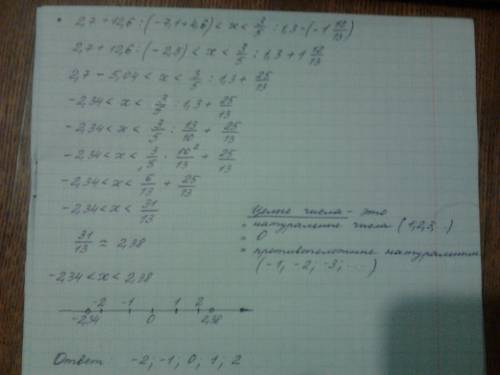 • 2,7 + 12,6 : (-7,1+4,6) < x < 3/5 : 1,3 - (-1 12/13)
2,7 + 12,6 : (-2,5) < x < 3/5 : 1,3 + 1 12/13
2,7 - 5,04 < x < 3/5 : 1,3 + 25/13
-2,34 < x < 3/5 : 1,3 + 25/13
-2,34 < x < 3/5 : 13/10 + 25/13
-2,34 < x < 3/5 · 10²/13 + 25/13
-2,34 < x < 6/13 + 25/13
-2,34 < x < 31/13
31/13 ≈ 2,38
-2,34 < x < 2,38
Целые числа - это
• натуральные числа (1,2,3;..)
• 0
• противоположные натуральным
(-1; -2; -3; ....)
-2,34 -2 -1 0 1 2 2,38
Ответ: -2; -1; 0; 1; 2